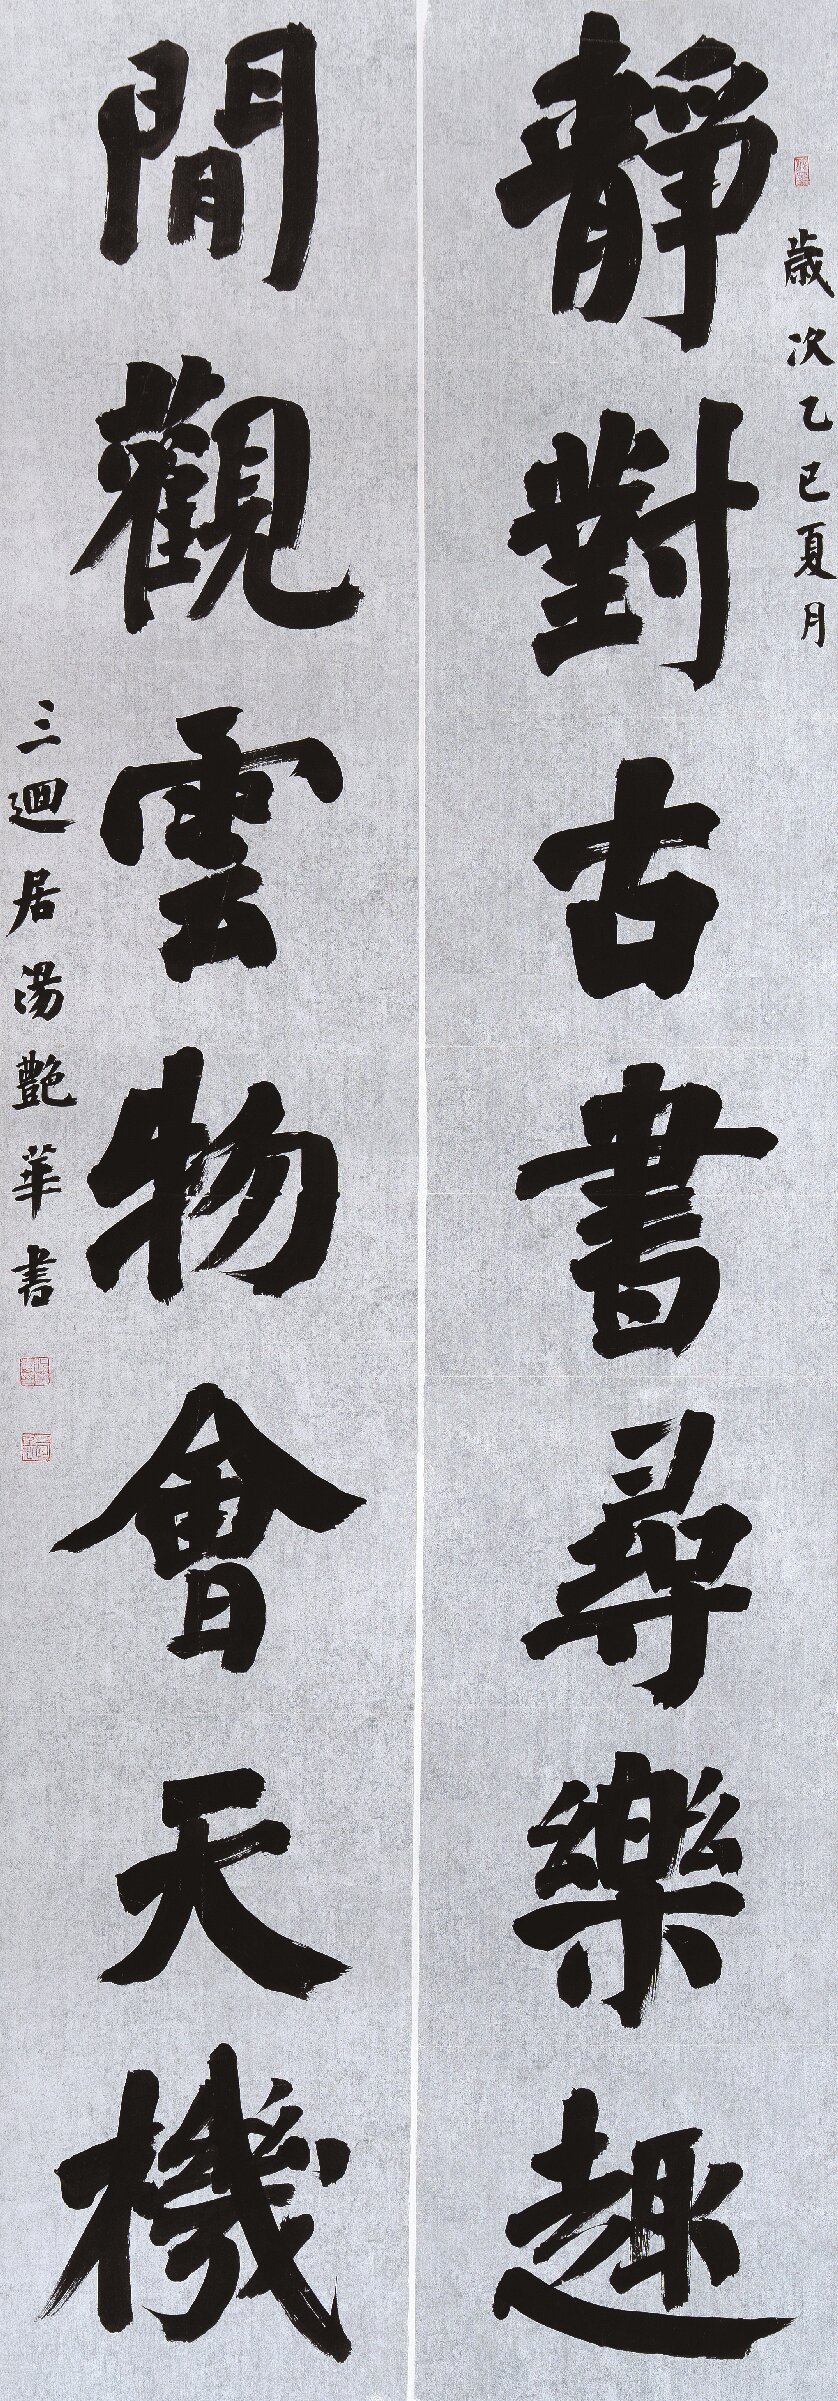 歲次乙巳夏月
靜對古書尋樂趣
閒觀雲物會天機
三迴居湯艷華書